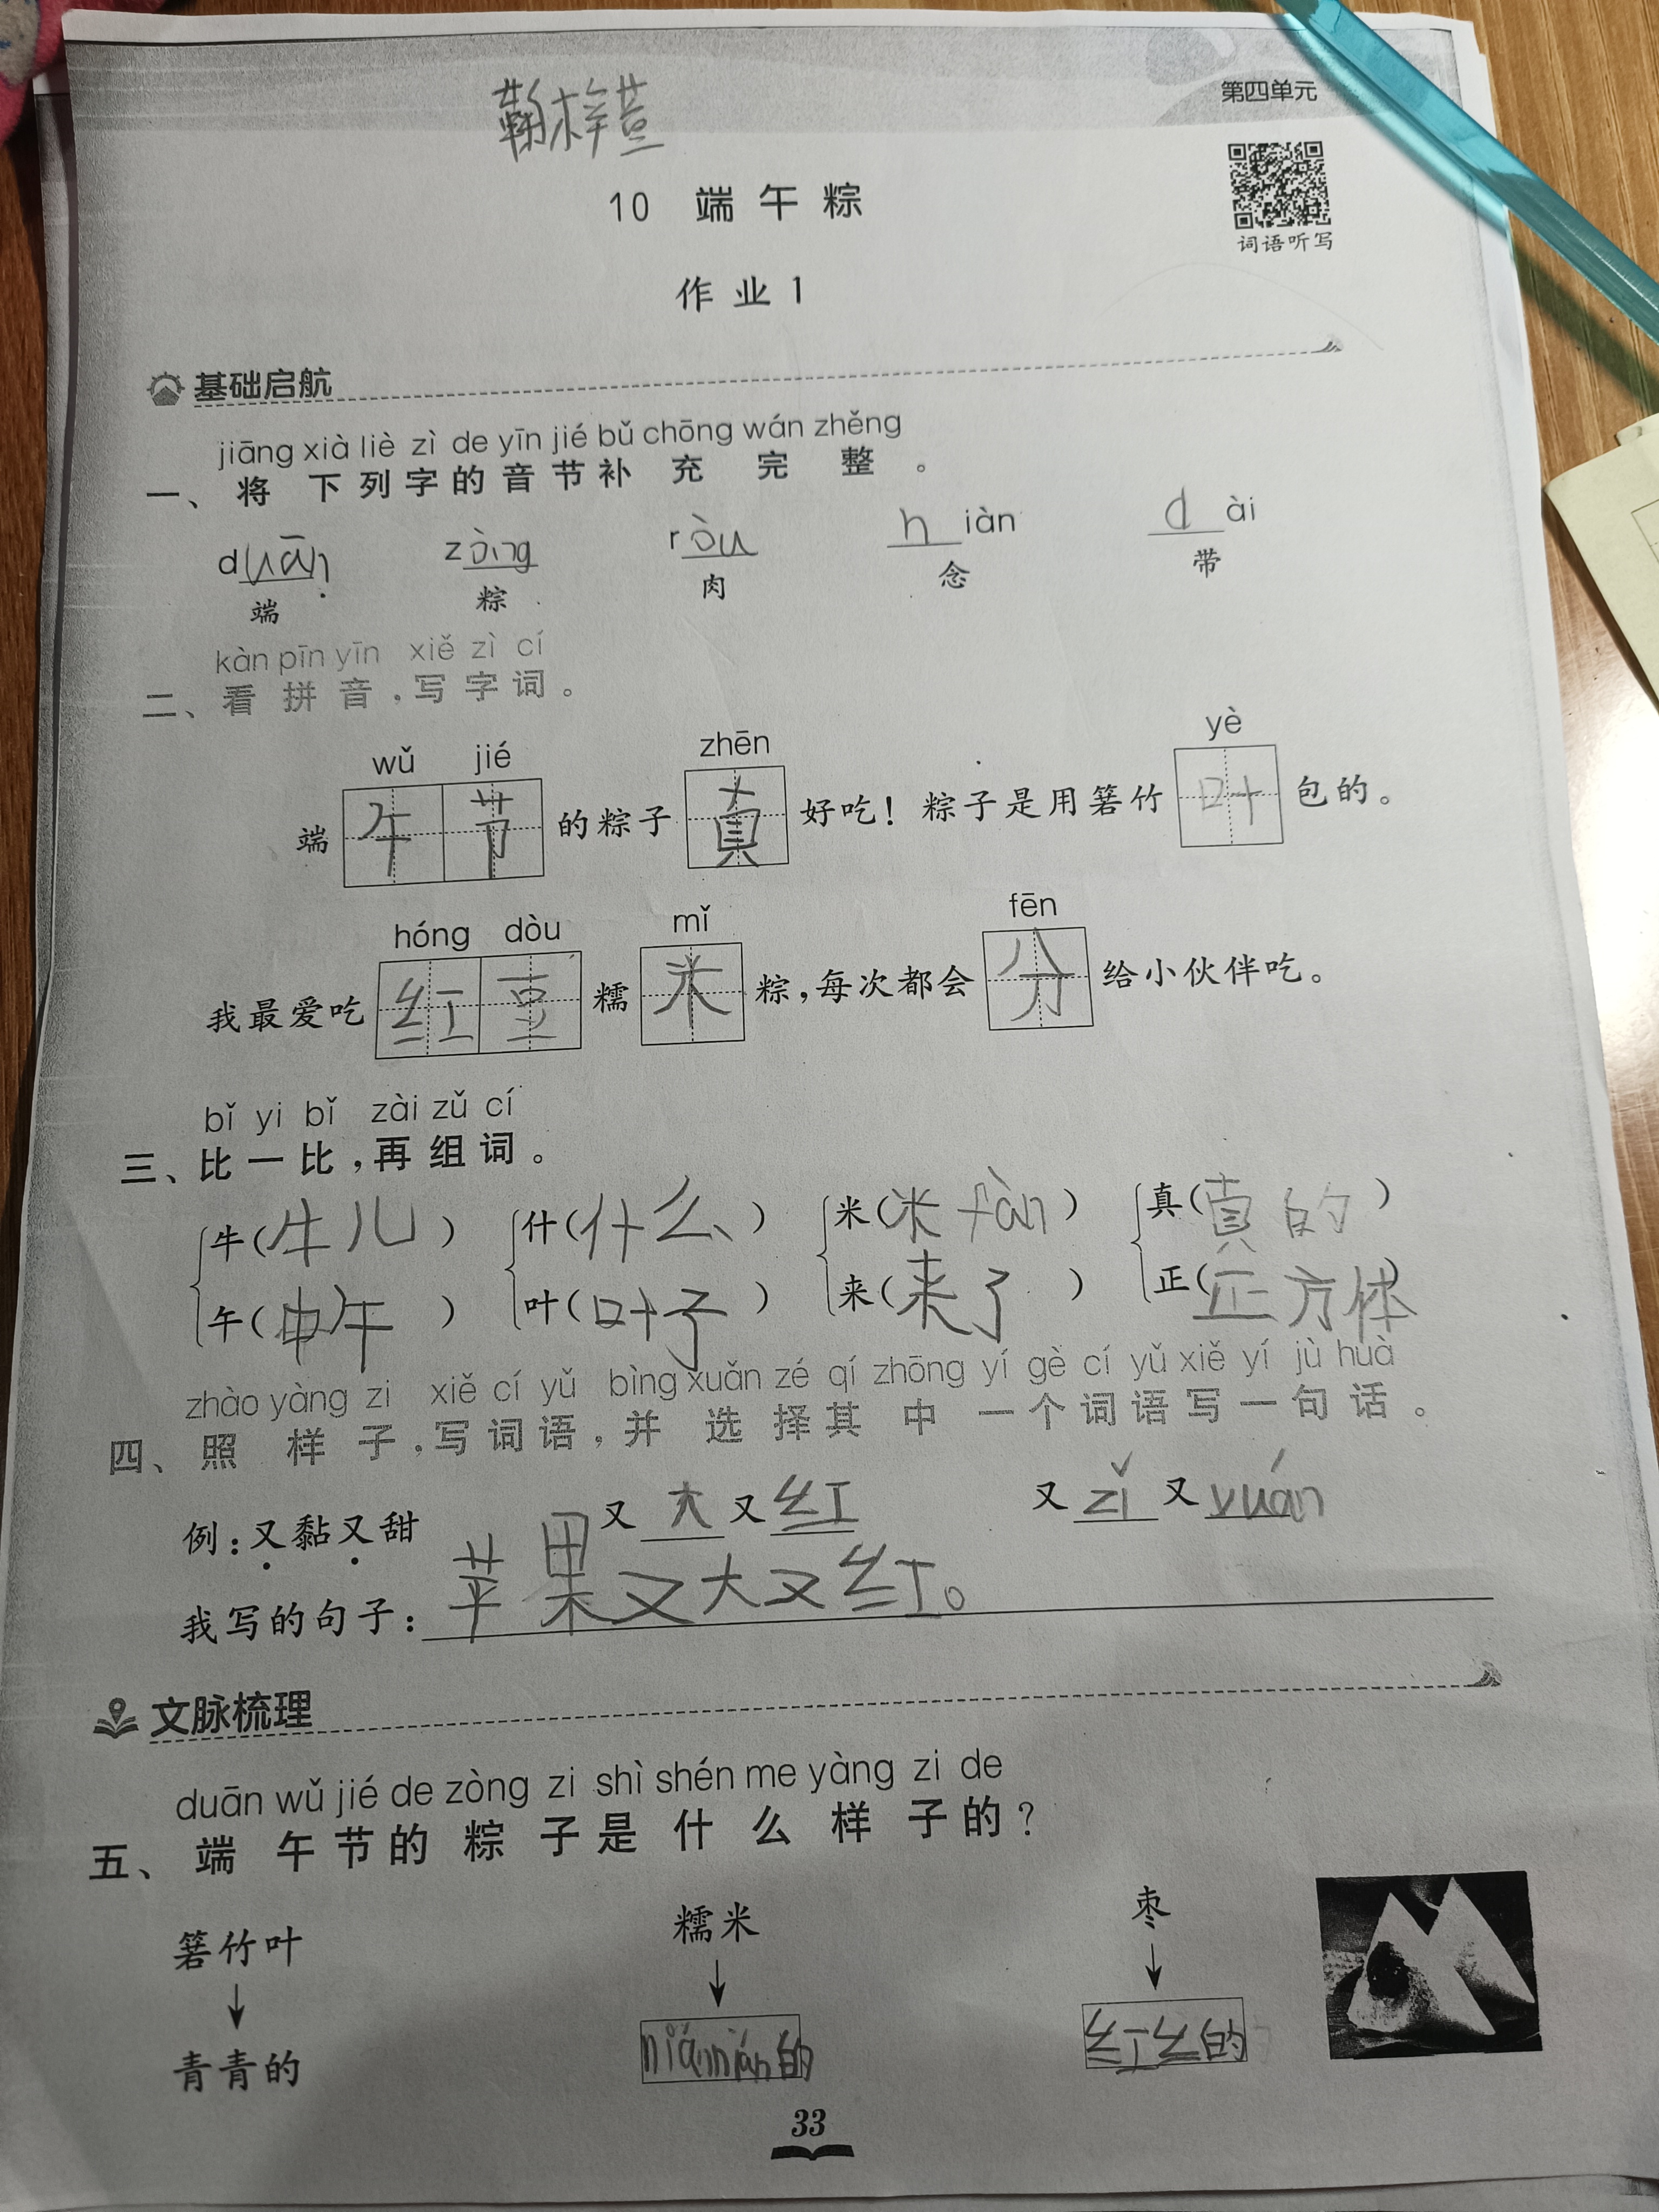 第四单元
词语听写
10 端午粽
作业1
基础启航
jiāng xià liè zì de yīn jié bǔ chōng wán zhěng
一、将下列字的音节补充完整。
duān zòng ròu niàn dài
端 粽 肉 念 带
kàn pīn yīn xiě zì cí
二、看拼音,写字词。
wǔ jié zhēn yè
端午节的粽子真好吃!粽子是用箬竹叶包的。
hóng dòu mǐ fēn
我最爱吃红豆糯米粽,每次都会分给小伙伴吃。
bǐ yi bǐ zài zǔ cí
三、比一比,再组词。
牛(牛儿) 什(什么) 米(米fàn) 真(真的)
午(中午) 叶(叶子) 来(来了) 正(正方体)
zhào yàng zi xiě cí yǔ bìng xuǎn zé qí zhōng yí gè cí yǔ xiě yí jù huà
四、照样子,写词语,并选择其中一个词语写一句话。
例:又黏又甜 又大又红 又zǐ又yuán
我写的句子:苹果又大又红。
文脉梳理
duān wǔ jié de zòng zi shì shén me yàng zi de
五、端午节的粽子是什么样子的?
箬竹叶 糯米 枣
↓ ↓ ↓
青青的 niánnián的 红红的
33